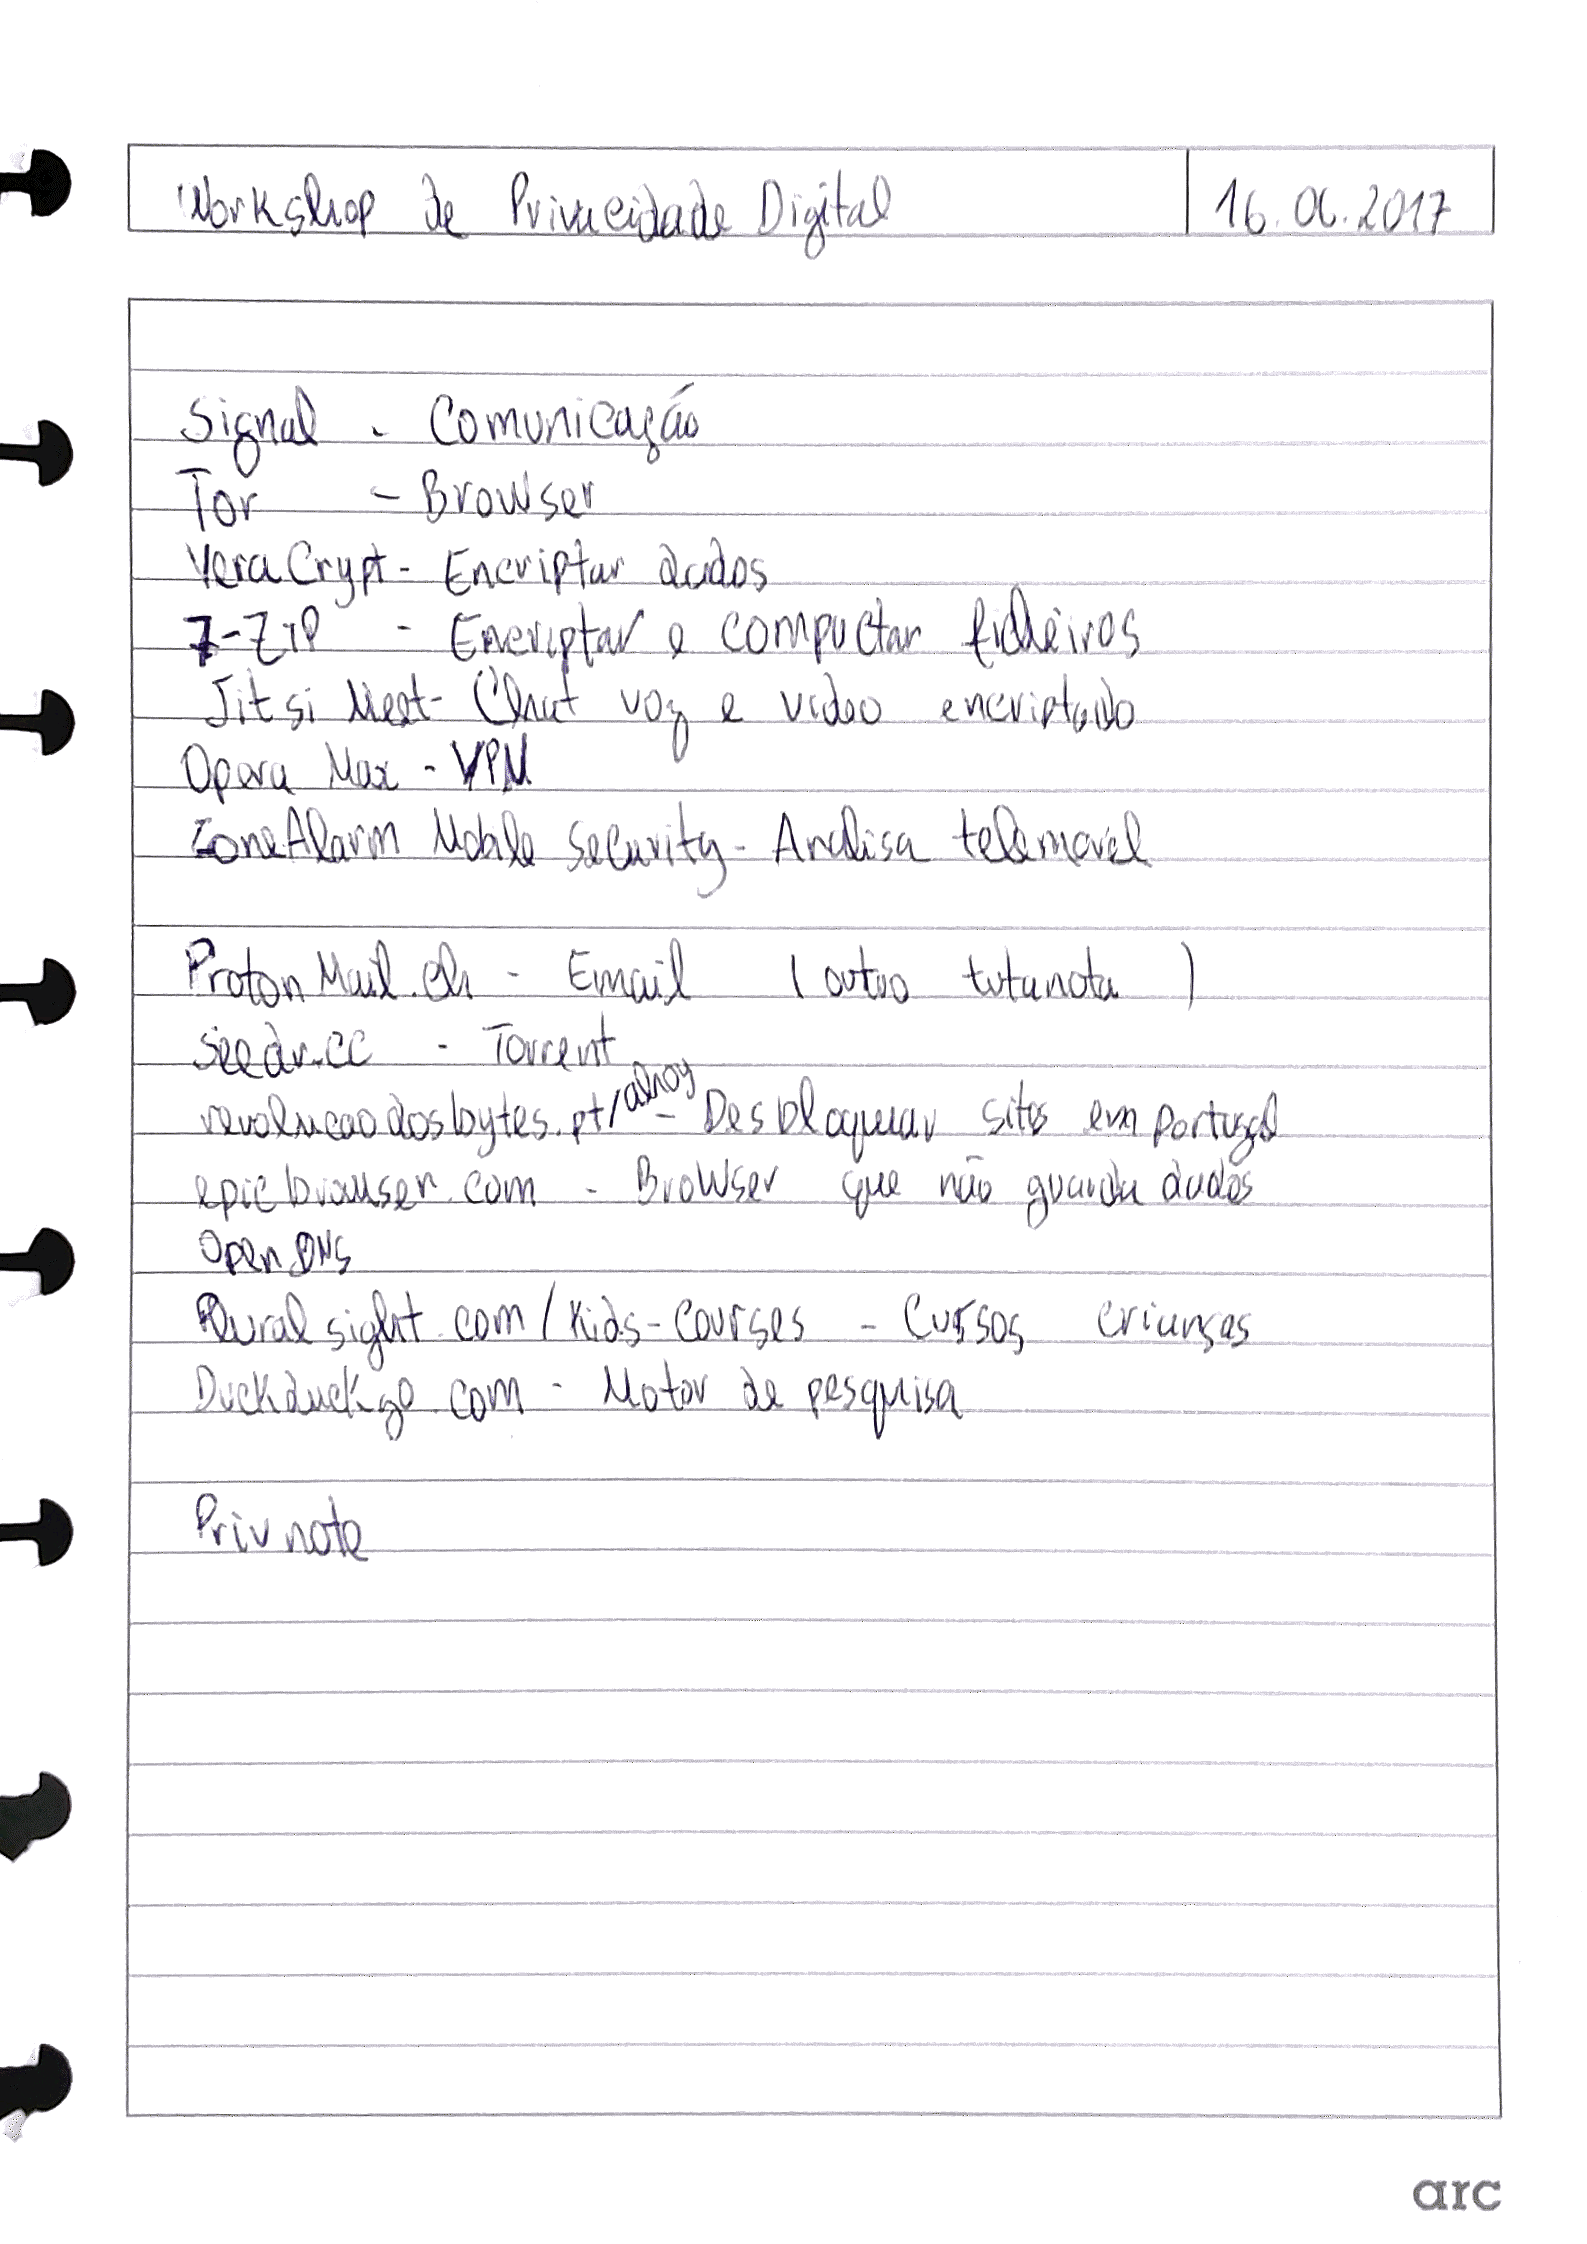 Workshop de Privacidade Digital
16.06.2017
Signal - Comunicação
Tor - Browser
VeraCrypt - Encriptar dados
7-ZIP - Encriptar e compactar ficheiros
Jitsi Meet - Chat voz e video encriptado
Opera Max - VPN
ZoneAlarm Mobile Security - Analisa telemovel
ProtonMail.ch - Email (outro tutanota)
seedr.cc - Torrent
revolucaodosbytes.pt/ahoy - Desbloquear sites em Portugal
epicbrowser.com - Browser que não guarda dados
Open DNS
Pluralsight.com/Kids-Courses - Cursos crianças
Duckduckgo.com - Motor de pesquisa
Privnote
arc